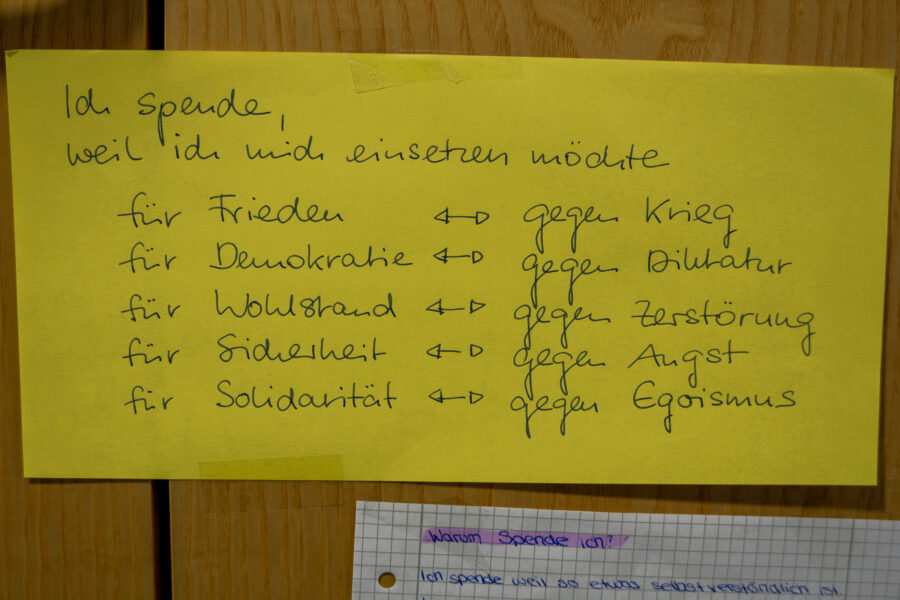 Ich spende,
weil ich mich einsetzen möchte
für Frieden ↔ gegen Krieg
für Demokratie ↔ gegen Diktatur
für Wohlstand ↔ gegen Zerstörung
für Sicherheit ↔ gegen Angst
für Solidarität ↔ gegen Egoismus
Warum Spende ich?
Ich spende weil so etwas selbstverständlich ist